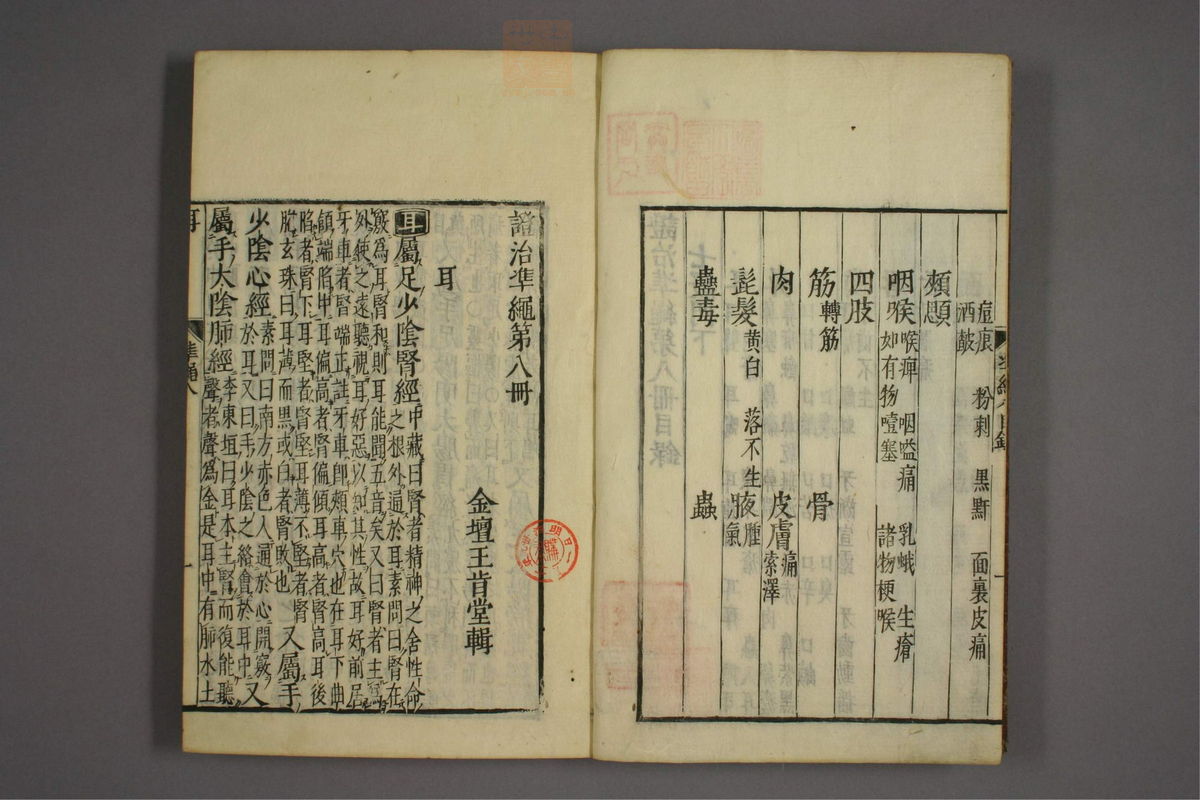 痘痕 粉刺 黒䵟 面裏皮痛
酒皶
頰顋
咽喉 喉痺 咽嗌痛 乳蛾 生瘡
如有物噎塞 諸物梗喉
四肢
筋 轉筋 骨
肉 皮膚 痛
索澤
髭髮 黄白 落不生 腋 腫
氣
蠱毒 蟲
證治準繩第八冊
金壇王肯堂輯
耳
耳屬足少陰腎經 中藏曰腎者精神之舍性命
之根外通於耳素問曰腎在
竅為耳腎和則耳能聞五音矣又曰腎者主
外使之遠聽視耳好惡以知其性故耳好前居
牙車者腎端正註牙車卽頰車穴也在耳下曲
頰端陷中耳偏高者腎偏傾耳高者腎高耳後
陷者腎下耳堅者腎堅耳薄不堅者腎
脆玄珠曰耳薄而黑或白者腎敗也 又屬手
少陰心經 素問曰南方赤色入通於心開竅
於耳又曰手少陰之絡會於耳中 又
屬手太陰肺經 李東垣曰耳本主腎而復能聽
聲者聲為金是耳中有肺水土